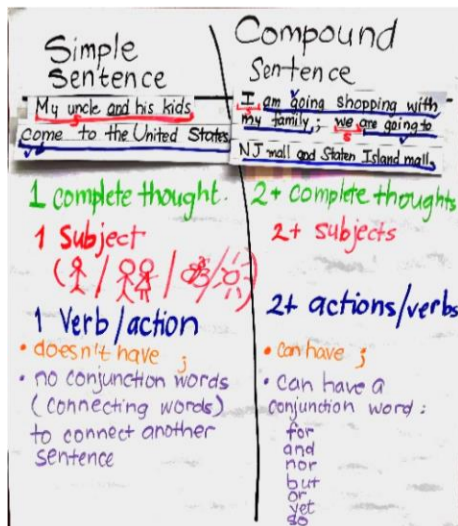 Simple
Sentence
My uncle and his kids
come to the United States
1 complete thought.
1 Subject
( / / / )
1 Verb/action
• doesn't have ;
• no conjunction words
(connecting words)
to connect another
sentence
Compound
Sentence
I am going shopping with
my family; we are going to
NJ mall and Staten Island mall.
S
S
S
2+ complete thoughts
2+ subjects
2+ actions/verbs
• can have ;
• can have a
conjunction word:
for
and
nor
but
or
yet
so